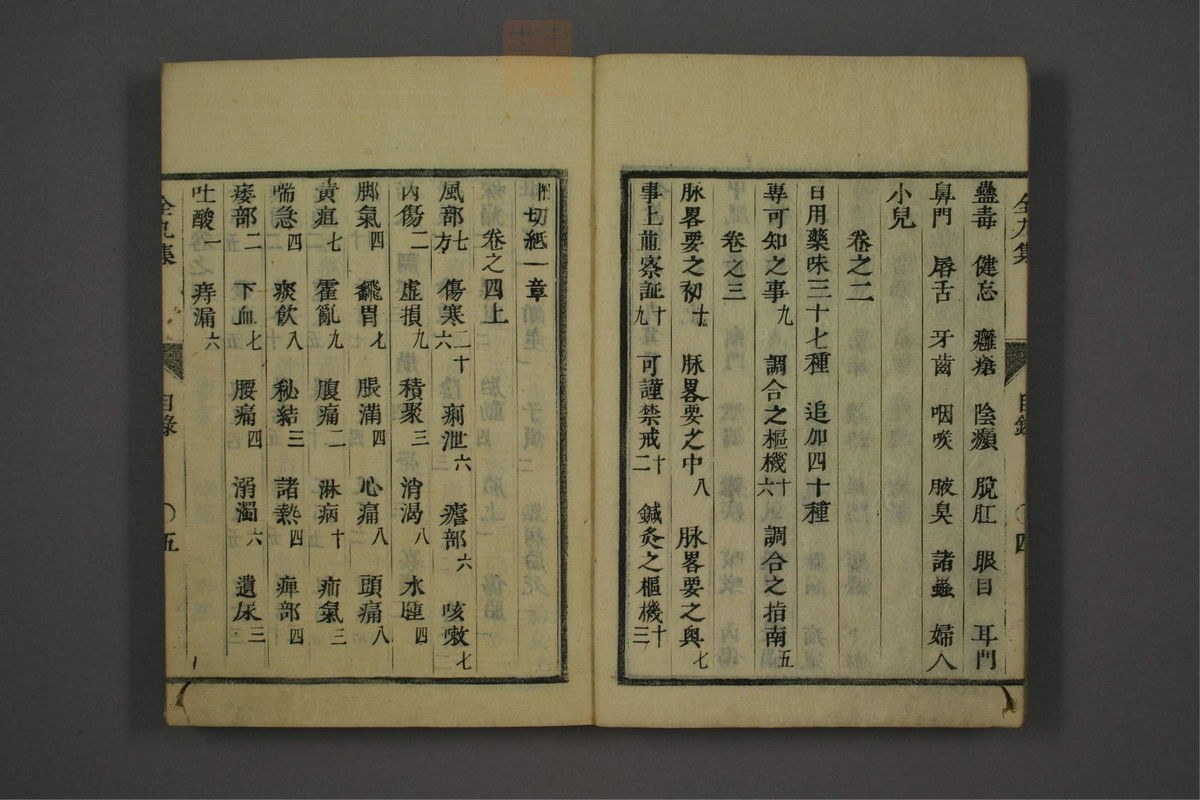 蠱毒 健忘 癰瘡 陰㿗 脫肛 眼目 耳門
鼻門 唇舌 牙齒 咽喉 腋臭 諸蟲 婦人
小兒
卷之二
日用藥味三十七種 追加四十種
專可知之事九 調合之樞機十六 調合之指南五
卷之三
脉畧要之初十 脉畧要之中八 脉畧要之奥七
事上前察証十九 可謹禁戒十二 鍼灸之樞機十三
全九集 目錄 〇四
附切紙一章
卷之四上
風部七方 傷寒二十六 痢泄六 瘧部六 咳嗽七
內傷二 虛損九 積聚三 消渴八 水腫四
脚氣四 飜胃七 脹滿四 心痛八 頭痛八
黃疸七 霍亂九 腹痛二 淋病十 疝氣三
喘急四 痰飲八 秘結三 諸熱四 痺部四
痿部二 下血七 腰痛四 溺濁六 遺尿三
吐酸一 痔漏六
全九集 目錄 〇五